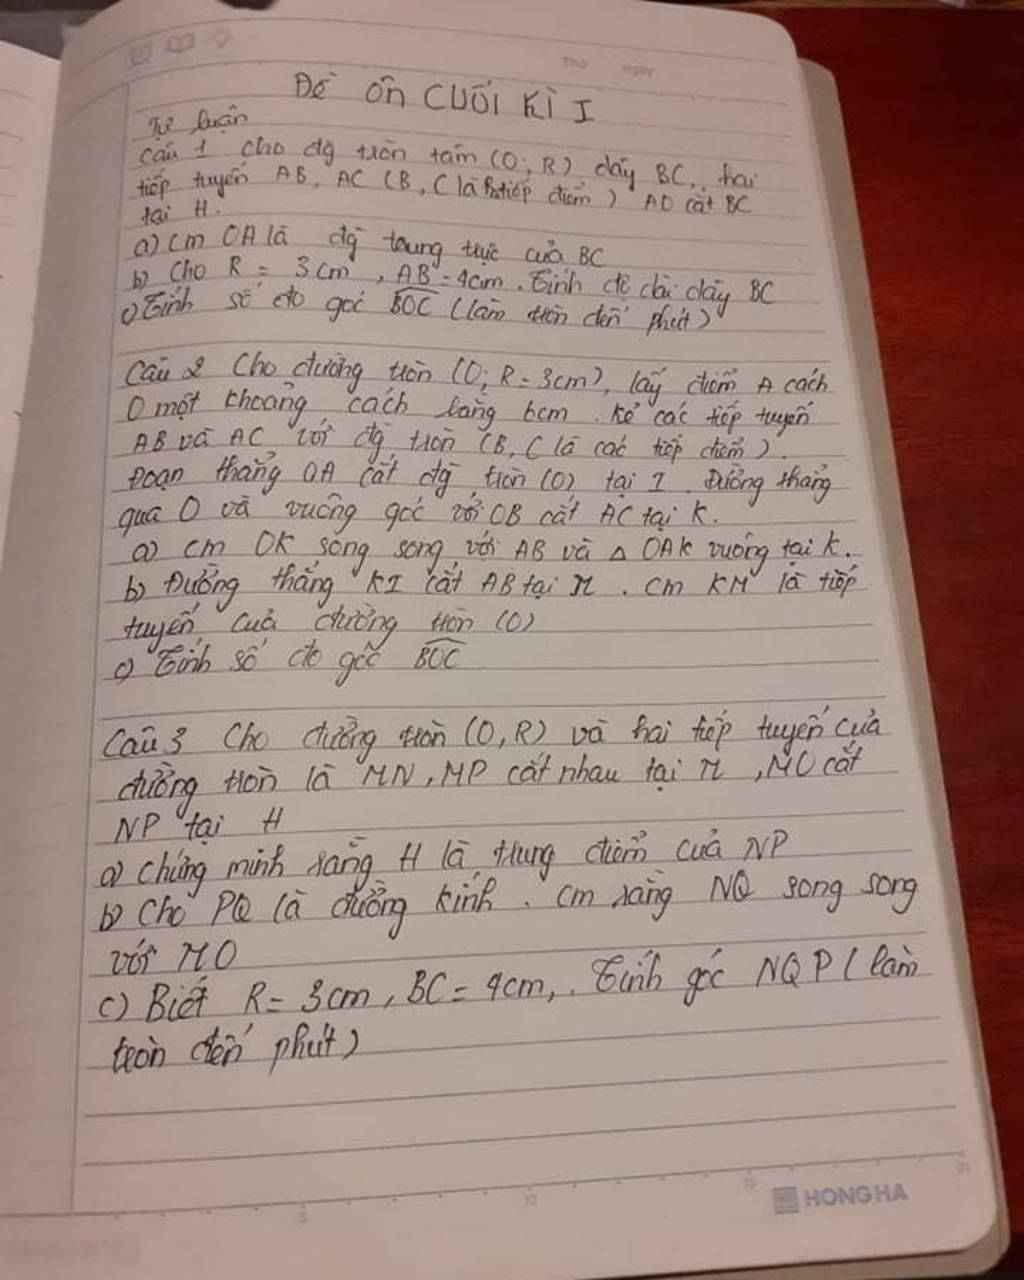 Thứ ngày
Đề ôn CUỐI KÌ I
Tự luận
Câu 1 Cho đg tròn tâm (O; R) dây BC, hai
tiếp tuyến AB, AC (B, C là tiếp điểm) AO cắt BC
tại H.
a) Cm OA là đg trung trực của BC
b) Cho R = 3cm, AB = 4cm. Tính độ dài dây BC
c) Tính số đo góc BOC (làm tròn đến phút)
Câu 2 Cho đường tròn (O; R = 3cm), lấy điểm A cách
O một khoảng cách bằng 6cm. Kẻ các tiếp tuyến
AB và AC với đg tròn (B, C là các tiếp điểm).
Đoạn thẳng OA cắt đg tròn (O) tại I. Đường thẳng
qua O và vuông góc với OB cắt AC tại K.
a) Cm OK song song với AB và Δ OAK vuông tại K.
b) Đường thẳng KI cắt AB tại M. Cm KM là tiếp
tuyến của đường tròn (O)
c) Tính số đo góc BOC
Câu 3 Cho đường tròn (O, R) và hai tiếp tuyến của
đường tròn là MN, MP cắt nhau tại M, MO cắt
NP tại H
a) Chứng minh rằng H là trung điểm của NP
b) Cho PQ là đường kính. Cm rằng NQ song song
với MO
c) Biết R = 3cm, BC = 4cm, Tính góc NQP (làm
tròn đến phút)
5 10 15 20
HONG HA